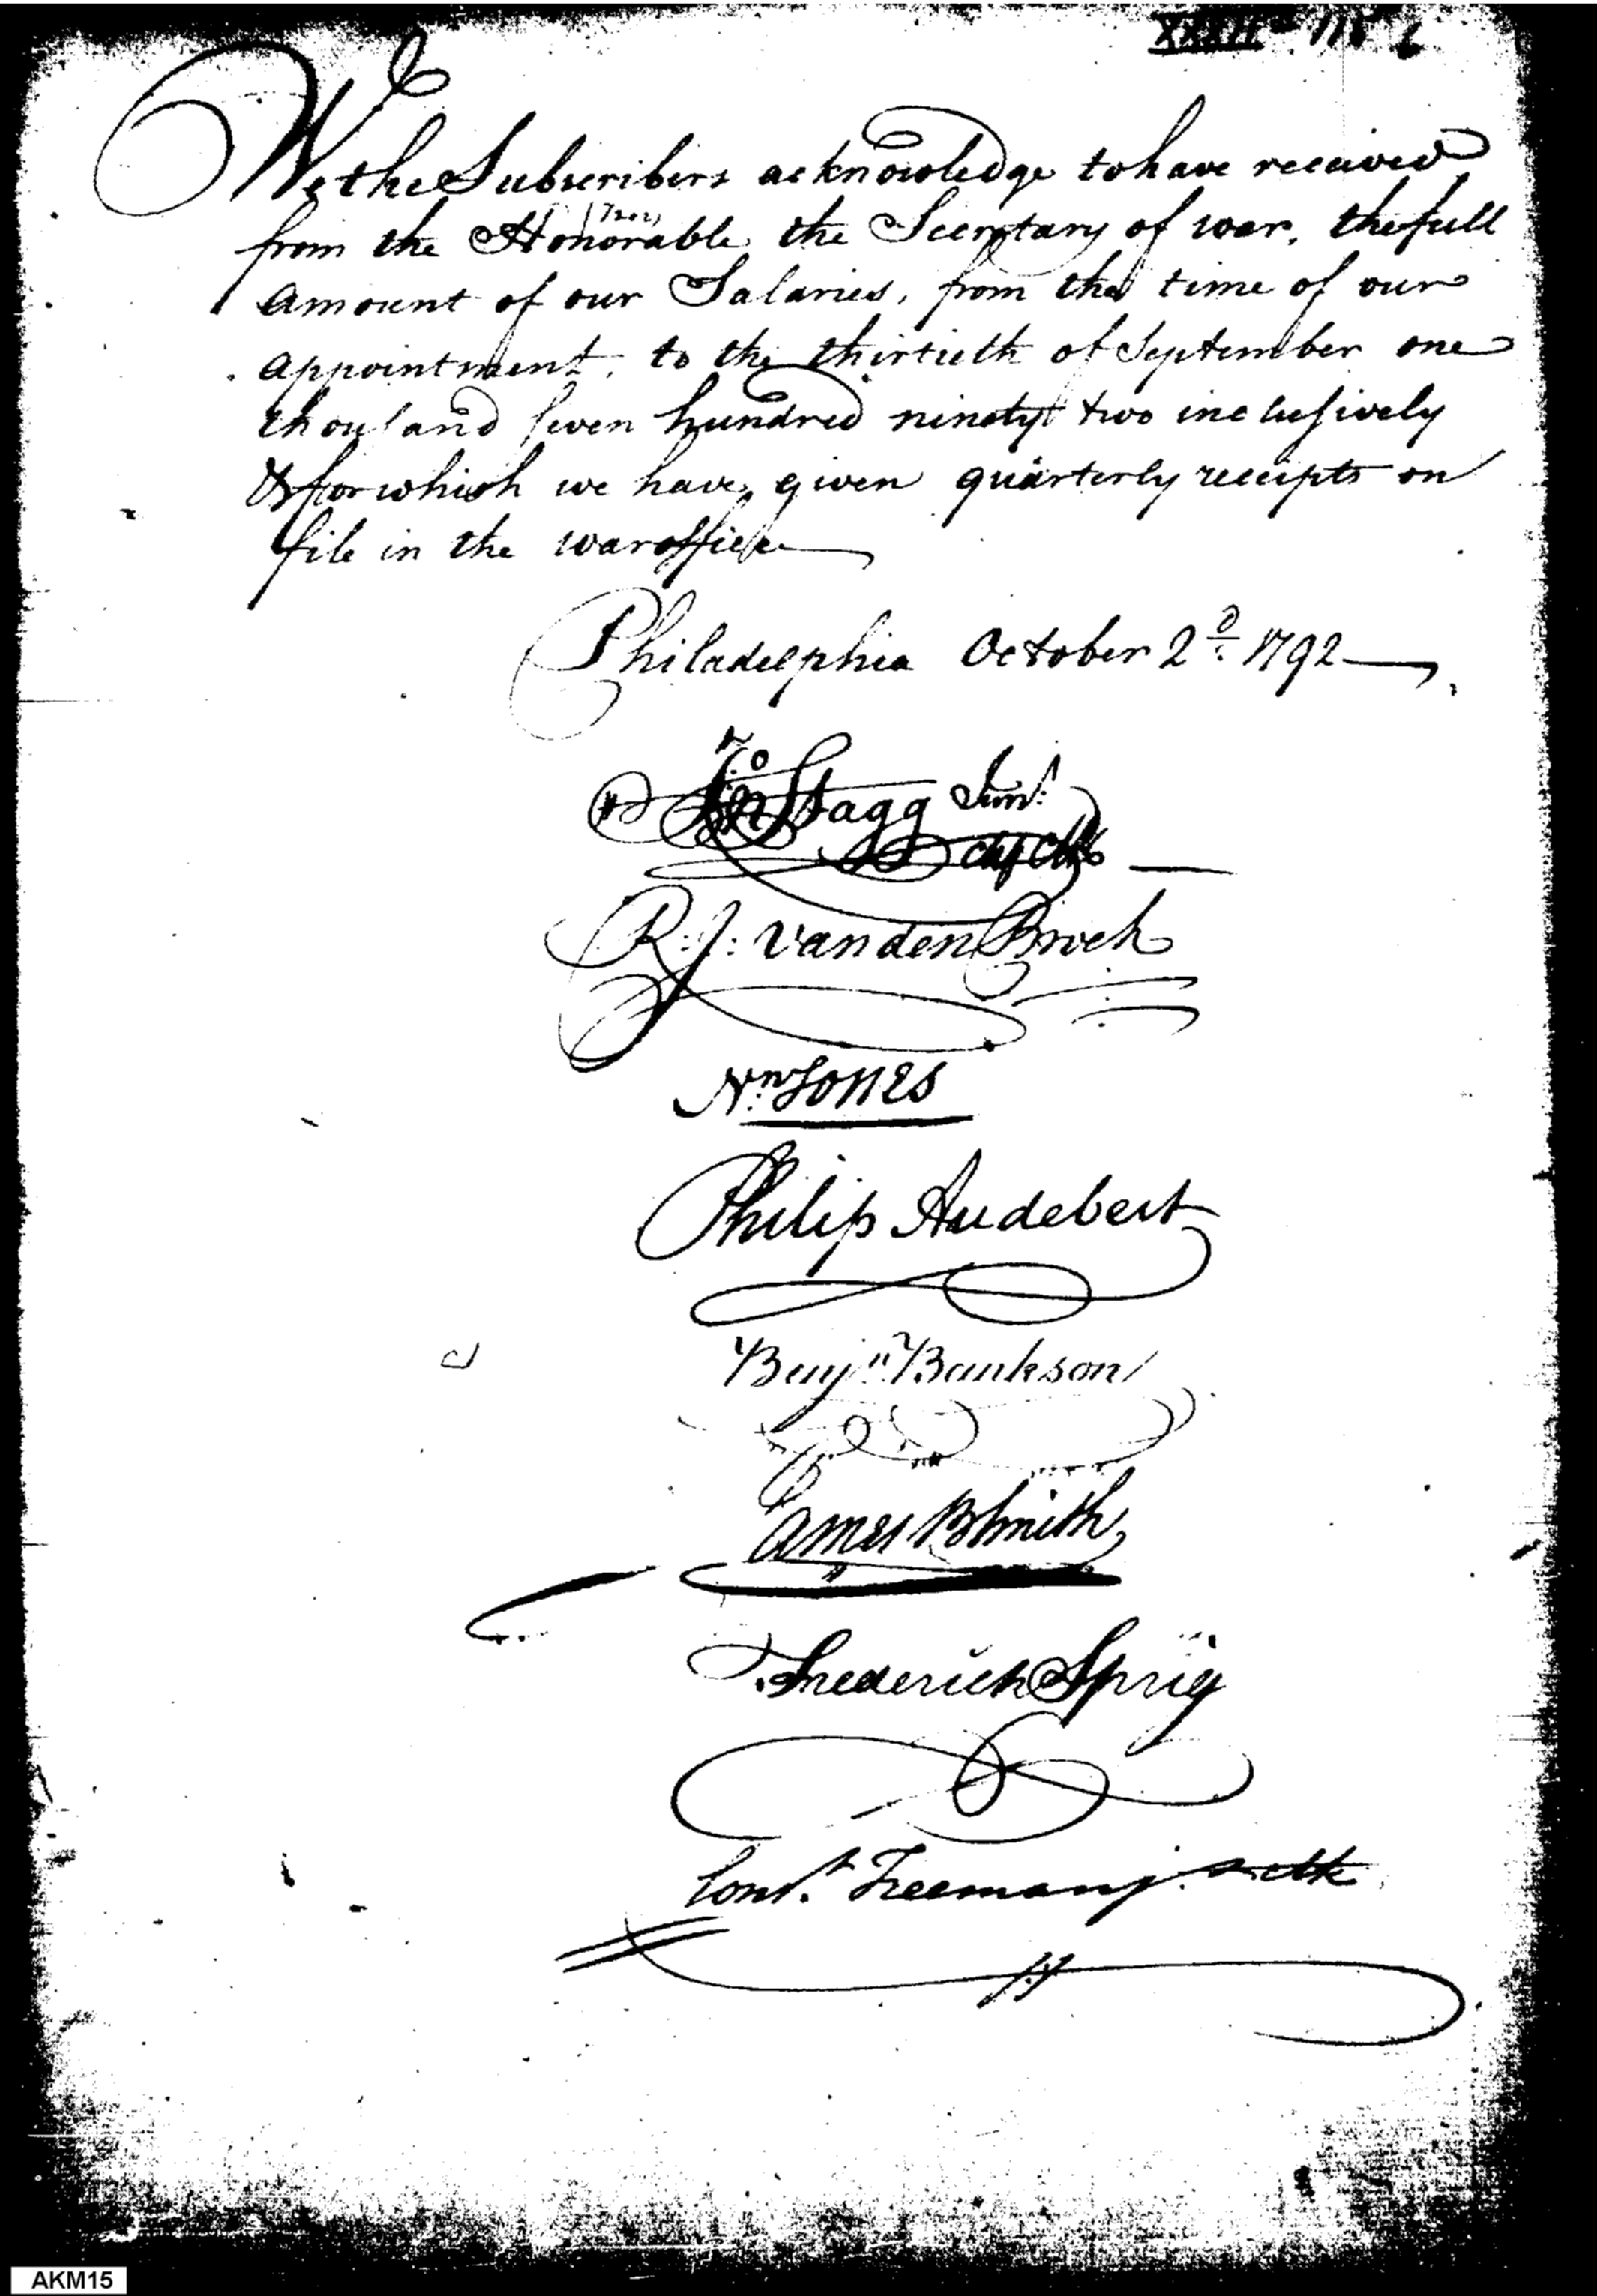 We the Subscribers acknowledge to have received
from the Honorable the Secretary of war, the full
amount of our Salaries, from the time of our
appointment, to the thirtieth of September one
thousand seven hundred ninety two inclusively
& for which we have given quarterly receipts on
file in the war office
Philadelphia October 2d. 1792
Jno Stagg Junr.
Chf Clk
R: J: Vanden Broek
Nn. Jones
Philip Audebert
Benjn. Bankson
James B Smith
Frederick Sprig
Const. Freeman
AKM15